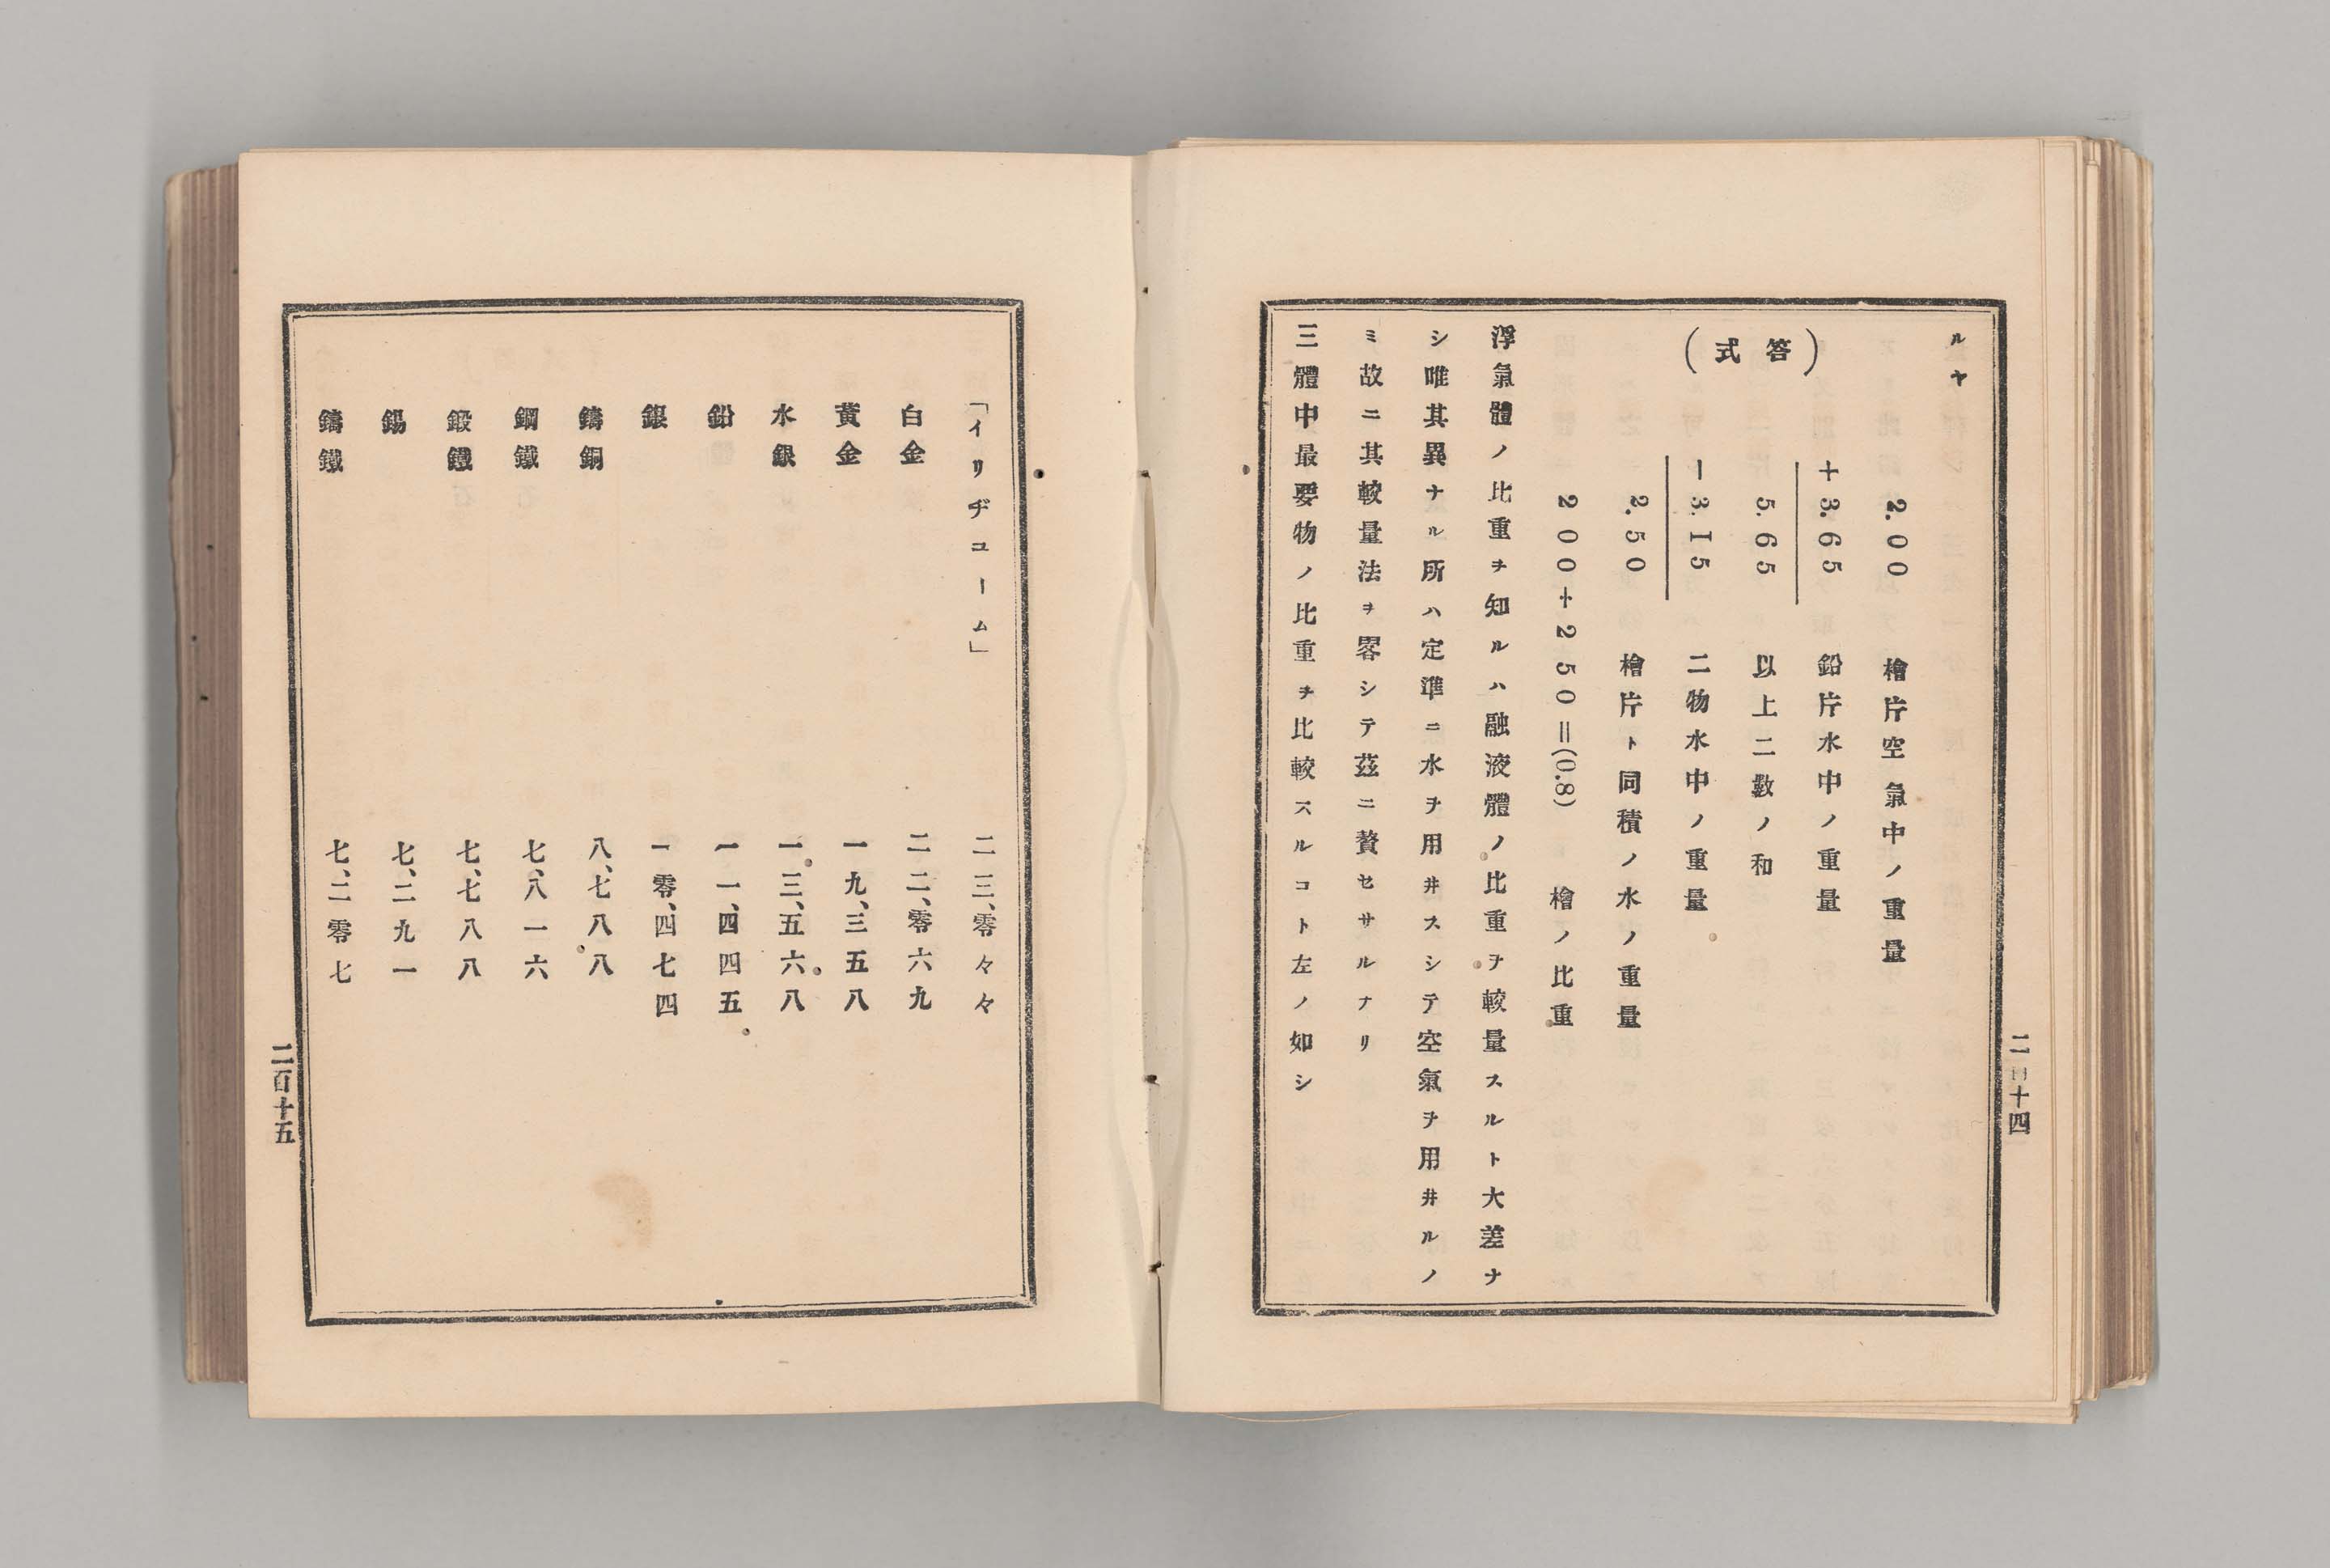 ルヤ
(答式)
2.00 檜片空氣中ノ重量
+3.65 鉛片水中ノ重量
5.65 以上二數ノ和
-3.15 二物水中ノ重量
2.50 檜片ト同積ノ水ノ重量
200÷250=(0.8) 檜ノ比重
浮氣體ノ比重ヲ知ルハ融液體ノ比重ヲ較量スルト大差ナ
シ唯其異ナル所ハ定準ニ水ヲ用井スシテ空氣ヲ用井ルノ
ミ故ニ其較量法ヲ畧シテ茲ニ贅セサルナリ
三體中最要物ノ比重ヲ比較スルコト左ノ如シ
二百十四
「イリヂユーム」 二三、零々々
白金 二二、零六九
黃金 一九、三五八
水銀 一三、五六八
鉛 一一、四四五
銀 一零、四七四
鑄銅 八、七八八
鋼鐵 七、八一六
鍛鐵 七、七八八
錫 七、二九一
鑄鐵 七、二零七
二百十五